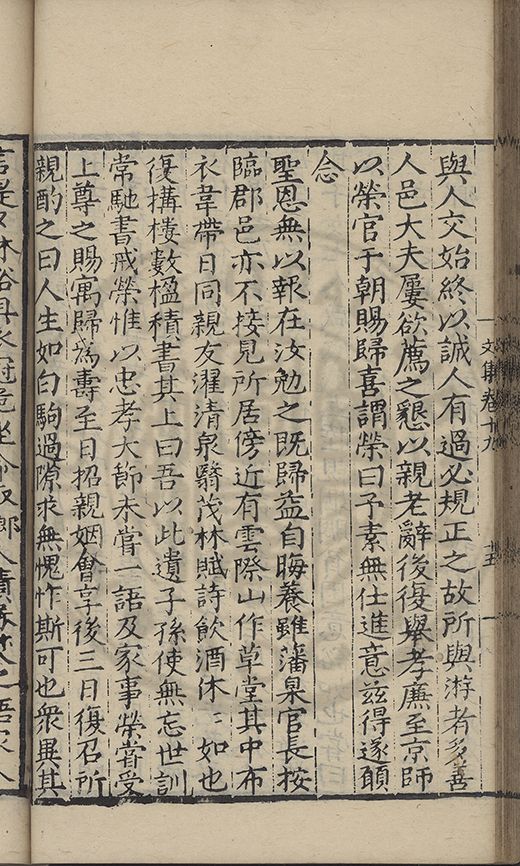 文集卷十九
十五
與人交始終以誠人有過必規正之故所與游者多善
人邑大夫屢欲薦之懇以親老辭後復舉孝廉至京師
以榮官于朝賜歸喜謂榮曰予素無仕進意茲得遂願
念
聖恩無以報在汝勉之既歸益自晦養雖藩臬官長按
臨郡邑亦不接見所居傍近有雲際山作草堂其中布
衣韋帶日同親友濯清泉翳茂林賦詩飲酒休〻如也
復搆樓數楹積書其上曰吾以此遺子孫使無忘世訓
常馳書戒榮惟以忠孝大節未嘗一語及家事榮嘗受
上尊之賜寓歸為壽至日招親姻會享後三日復召所
親酌之曰人生如白駒過隙求無愧怍斯可也眾異其